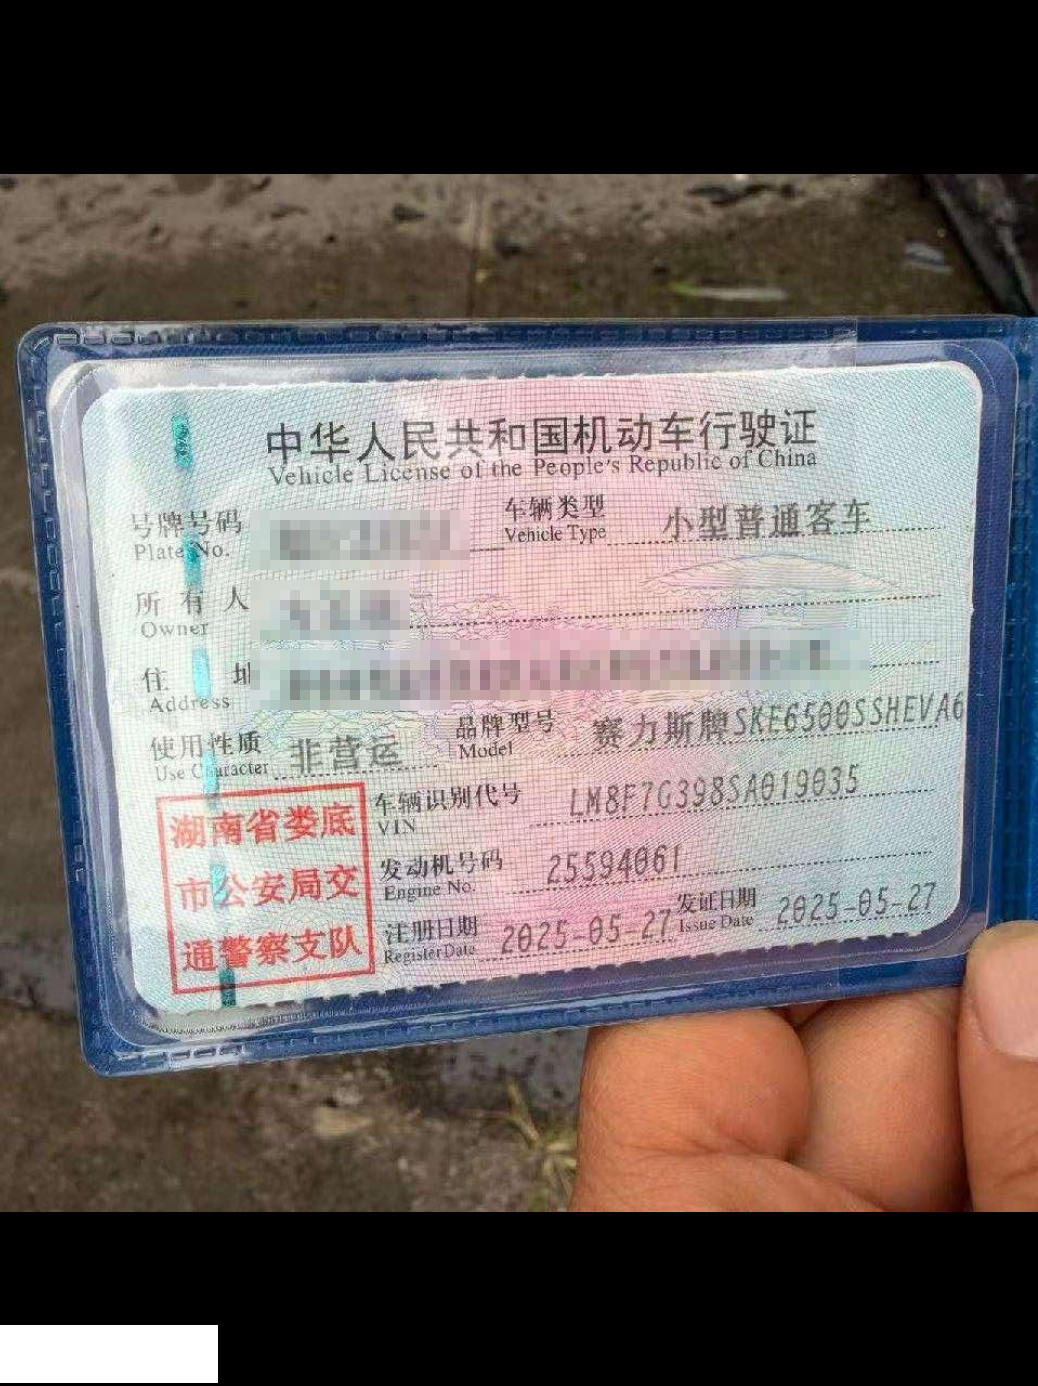 中华人民共和国机动车行驶证
Vehicle License of the People's Republic of China
号牌号码 车辆类型 小型普通客车
Plate No. Vehicle Type
所有人
Owner
住址
Address
使用性质 非营运 品牌型号 赛力斯牌SKE6500SSHEVA6
Use Character Model
车辆识别代号 LM8F7G398SA019035
VIN
发动机号码 25594061
Engine No.
注册日期 2025-05-27 发证日期 2025-05-27
Register Date Issue Date
湖南省娄底
市公安局交
通警察支队